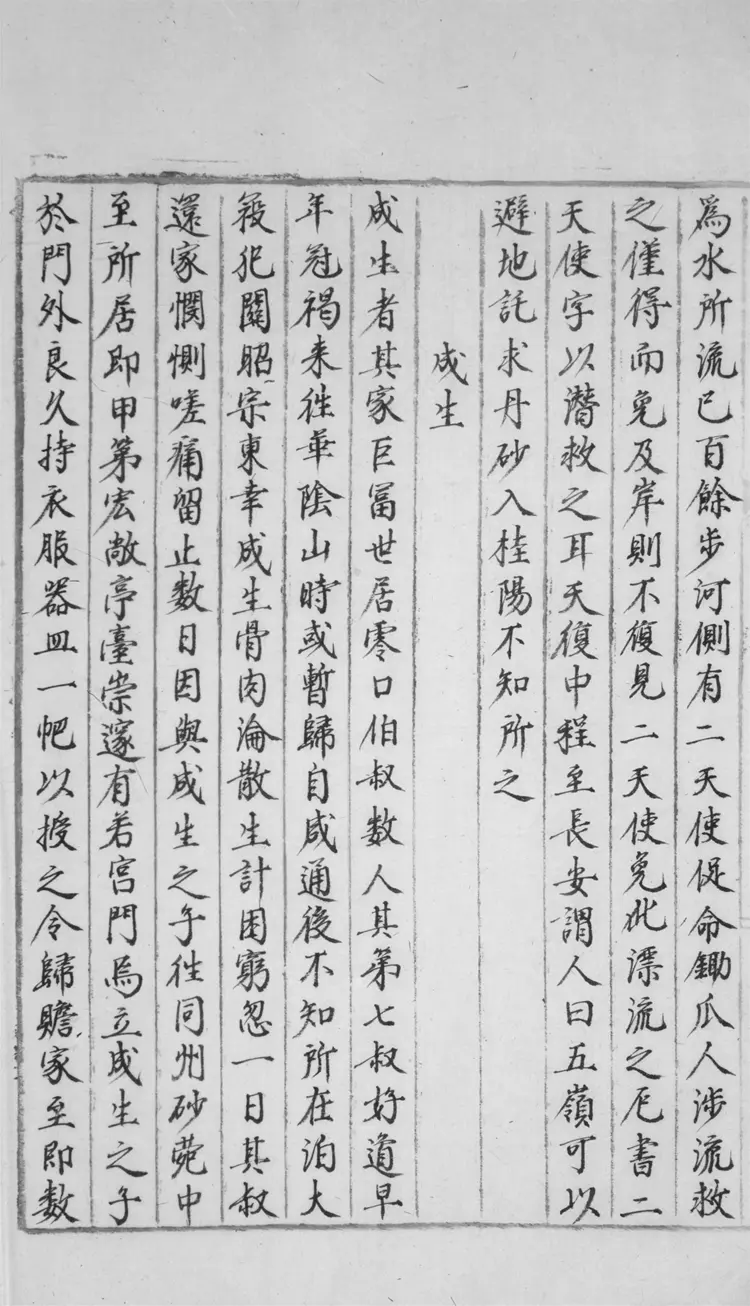 為水所流已百餘步河側有二天使促命鋤瓜人涉流救
之僅得而免及岸則不復見二天使免此漂流之厄書二
天使字以潛救之耳天復中程至長安謂人曰五嶺可以
避地託求丹砂入桂陽不知所之
成生
成生者其家巨富世居零口伯叔數人其第七叔好道早
年冠褐来往華陰山時或暫歸自咸通後不知所在洎大
㓂犯闕昭宗東幸成生骨肉淪散生計困窮忽一日其叔
還家憫惻嗟痛留止数日因與成生之子往同州砂菀中
至所居即甲第宏敞亭臺崇邃有若宮門焉立成生之子
於門外良久持衣服器皿一帊以授之令歸贍家至即数